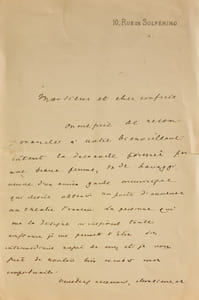 10, RUE DE SOLFÉRINO
Monsieur et cher confrère
On me prie de recom-
mander à votre bienveillant
intérêt la demande formée par
une brave femme,
veuve d'un ancien garde municipal
qui désire obtenir un poste d'ouvreuse
au théâtre La personne qui
me la désigne
me permet d'être son
intermédiaire auprès de vous, et je vous
prie de vouloir bien excuser mon
importunité.
Veuillez recevoir, Monsieur, et